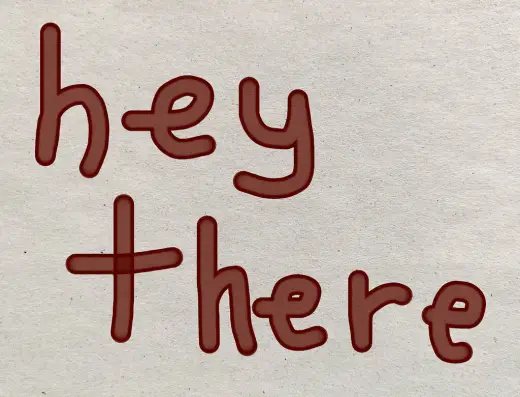 hey
there